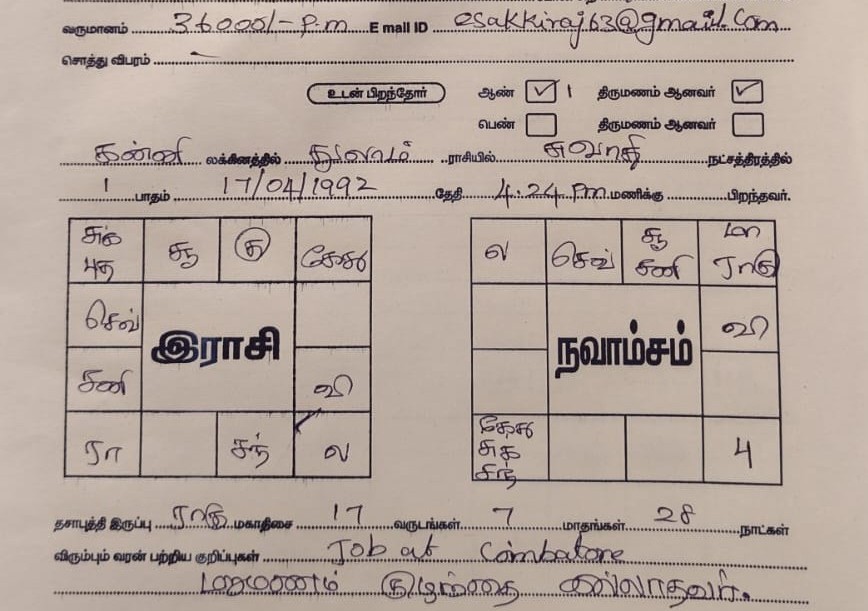 வருமானம் 36000/- P.m E mail ID esakkiraj63@gmail.com
சொத்து விபரம் -
உடன் பிறந்தோர் ஆண் ✓ 1 திருமணம் ஆனவர் ✓
பெண் திருமணம் ஆனவர்
கன்னி லக்கினத்தில் துலாம் ராசியில் சுவாதி நட்சத்திரத்தில்
1 பாதம் 17/04/1992 தேதி 4.24 Pm மணிக்கு பிறந்தவர்.
சுக் சூ கு கேது
புத
செவ்
இராசி
சனி வி
ரா சந் ல
ல செவ் சூ மா
சனி ராகு
வி
நவாம்சம்
கேது
சுக் 4
சந்
தசாபுத்தி இருப்பு ராகு மகாதிசை 17 வருடங்கள் 7 மாதங்கள் 28 நாட்கள்
விரும்பும் வரன் பற்றிய குறிப்புகள் Job at Coimbatore
மறுமணம் குழந்தை இல்லாதவர்.